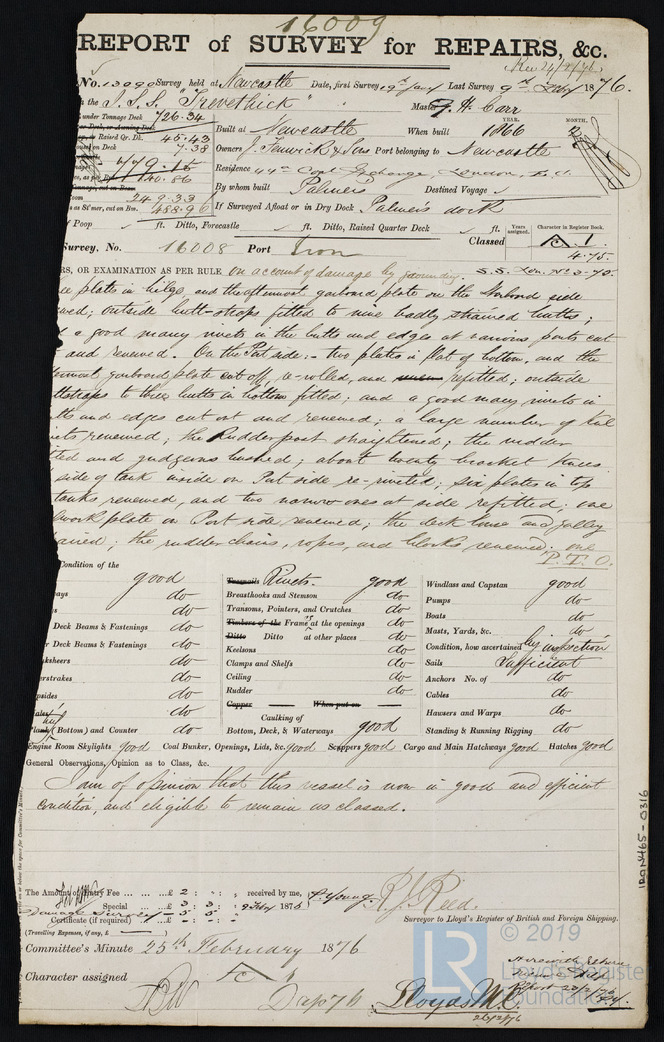 16009
REPORT of SURVEY for REPAIRS, &c.
Rec 24/2/76
No. 13090 Survey held at Newcastle Date, first Survey 19th Jany Last Survey 9th Feby 1876.
the I.S.S. "Trevethick" Master J. H. Carr
under Tonnage Deck 726.34
YEAR. MONTH.
Built at Newcastle When built 1866
Raised Qr. Dk. 45.43
7.38
Owners J. Fenwick & Sons Port belonging to Newcastle
779.15
140.86
Residence Coal Exchange, London, E.C.
By whom built Palmers Destined Voyage
249.33
as St'mer, cut on Bm. 488.96
If Surveyed Afloat or in Dry Dock Palmers dock
Poop ft. Ditto, Forecastle ft. Ditto, Raised Quarter Deck ft.
Years assigned. Character in Register Book.
Survey, No. 16008 Port Iron Classed A 1
4.75
RS, OR EXAMINATION AS PER RULE on account of damage by grounding. S.S. Lon. No 3-75.
plates in bilge and the aftermost garboard plate on the Starboard side
outside butt-straps fitted to nine badly strained butts;
a good many rivets in the butts and edges at various parts cut
and renewed. On the Port side:- two plates in flat of bottom, and the
garboard plate cut off, re-rolled, and refitted; outside
to three butts in bottom fitted; and a good many rivets in
and edges cut out and renewed; a large number of
renewed; the Rudder post straightened; the rudder
and gudgeons bushed; about twenty bracket knees
side of tank inside on Port side re-riveted; six plates in top
tanks renewed, and two narrow ones at side refitted; one
plate on Port side renewed; the deck house and galley
; the rudder chains, ropes, and blocks renewed; one
P.T.O.
Condition of the
good
Treenails Rivets. good
Windlass and Capstan good
ays do
Breasthooks and Stemson do
Pumps do
do
Transoms, Pointers, and Crutches do
Boats do
Deck Beams & Fastenings do
Timbers of the Frame at the openings do
Masts, Yards, &c. do
r Deck Beams & Fastenings do
Ditto Ditto at other places do
Condition, how ascertained by inspection
do
Keelsons do
Sails Sufficient
erstrakes do
Clamps and Shelfs do
Anchors No. of do
psides do
Ceiling do
Cables do
do
Rudder do
Hawsers and Warps do
Copper When put on
(Bottom) and Counter do
Caulking of
Bottom, Deck, & Waterways good
Standing & Running Rigging do
Engine Room Skylights good Coal Bunker, Openings, Lids, &c. good Scuppers good Cargo and Main Hatchways good Hatches good
General Observations, Opinion as to Class, &c.
I am of opinion that this vessel is now in good and efficient
condition, and eligible to remain as classed.
The Amount of Entry Fee £ 2 : : received by me,
Special £ 3 : 3 :
Damage Survey 5 5
Certificate (if required)
(Travelling Expenses, if any, £
R J Reed.
Surveyor to Lloyd's Register of British and Foreign Shipping.
Committee's Minute 25th February 1876
Character assigned A 1
Lloyds M.C.
26/2/76
IRON465-0316
© 2019
LR
Lloyd's Register
Foundation